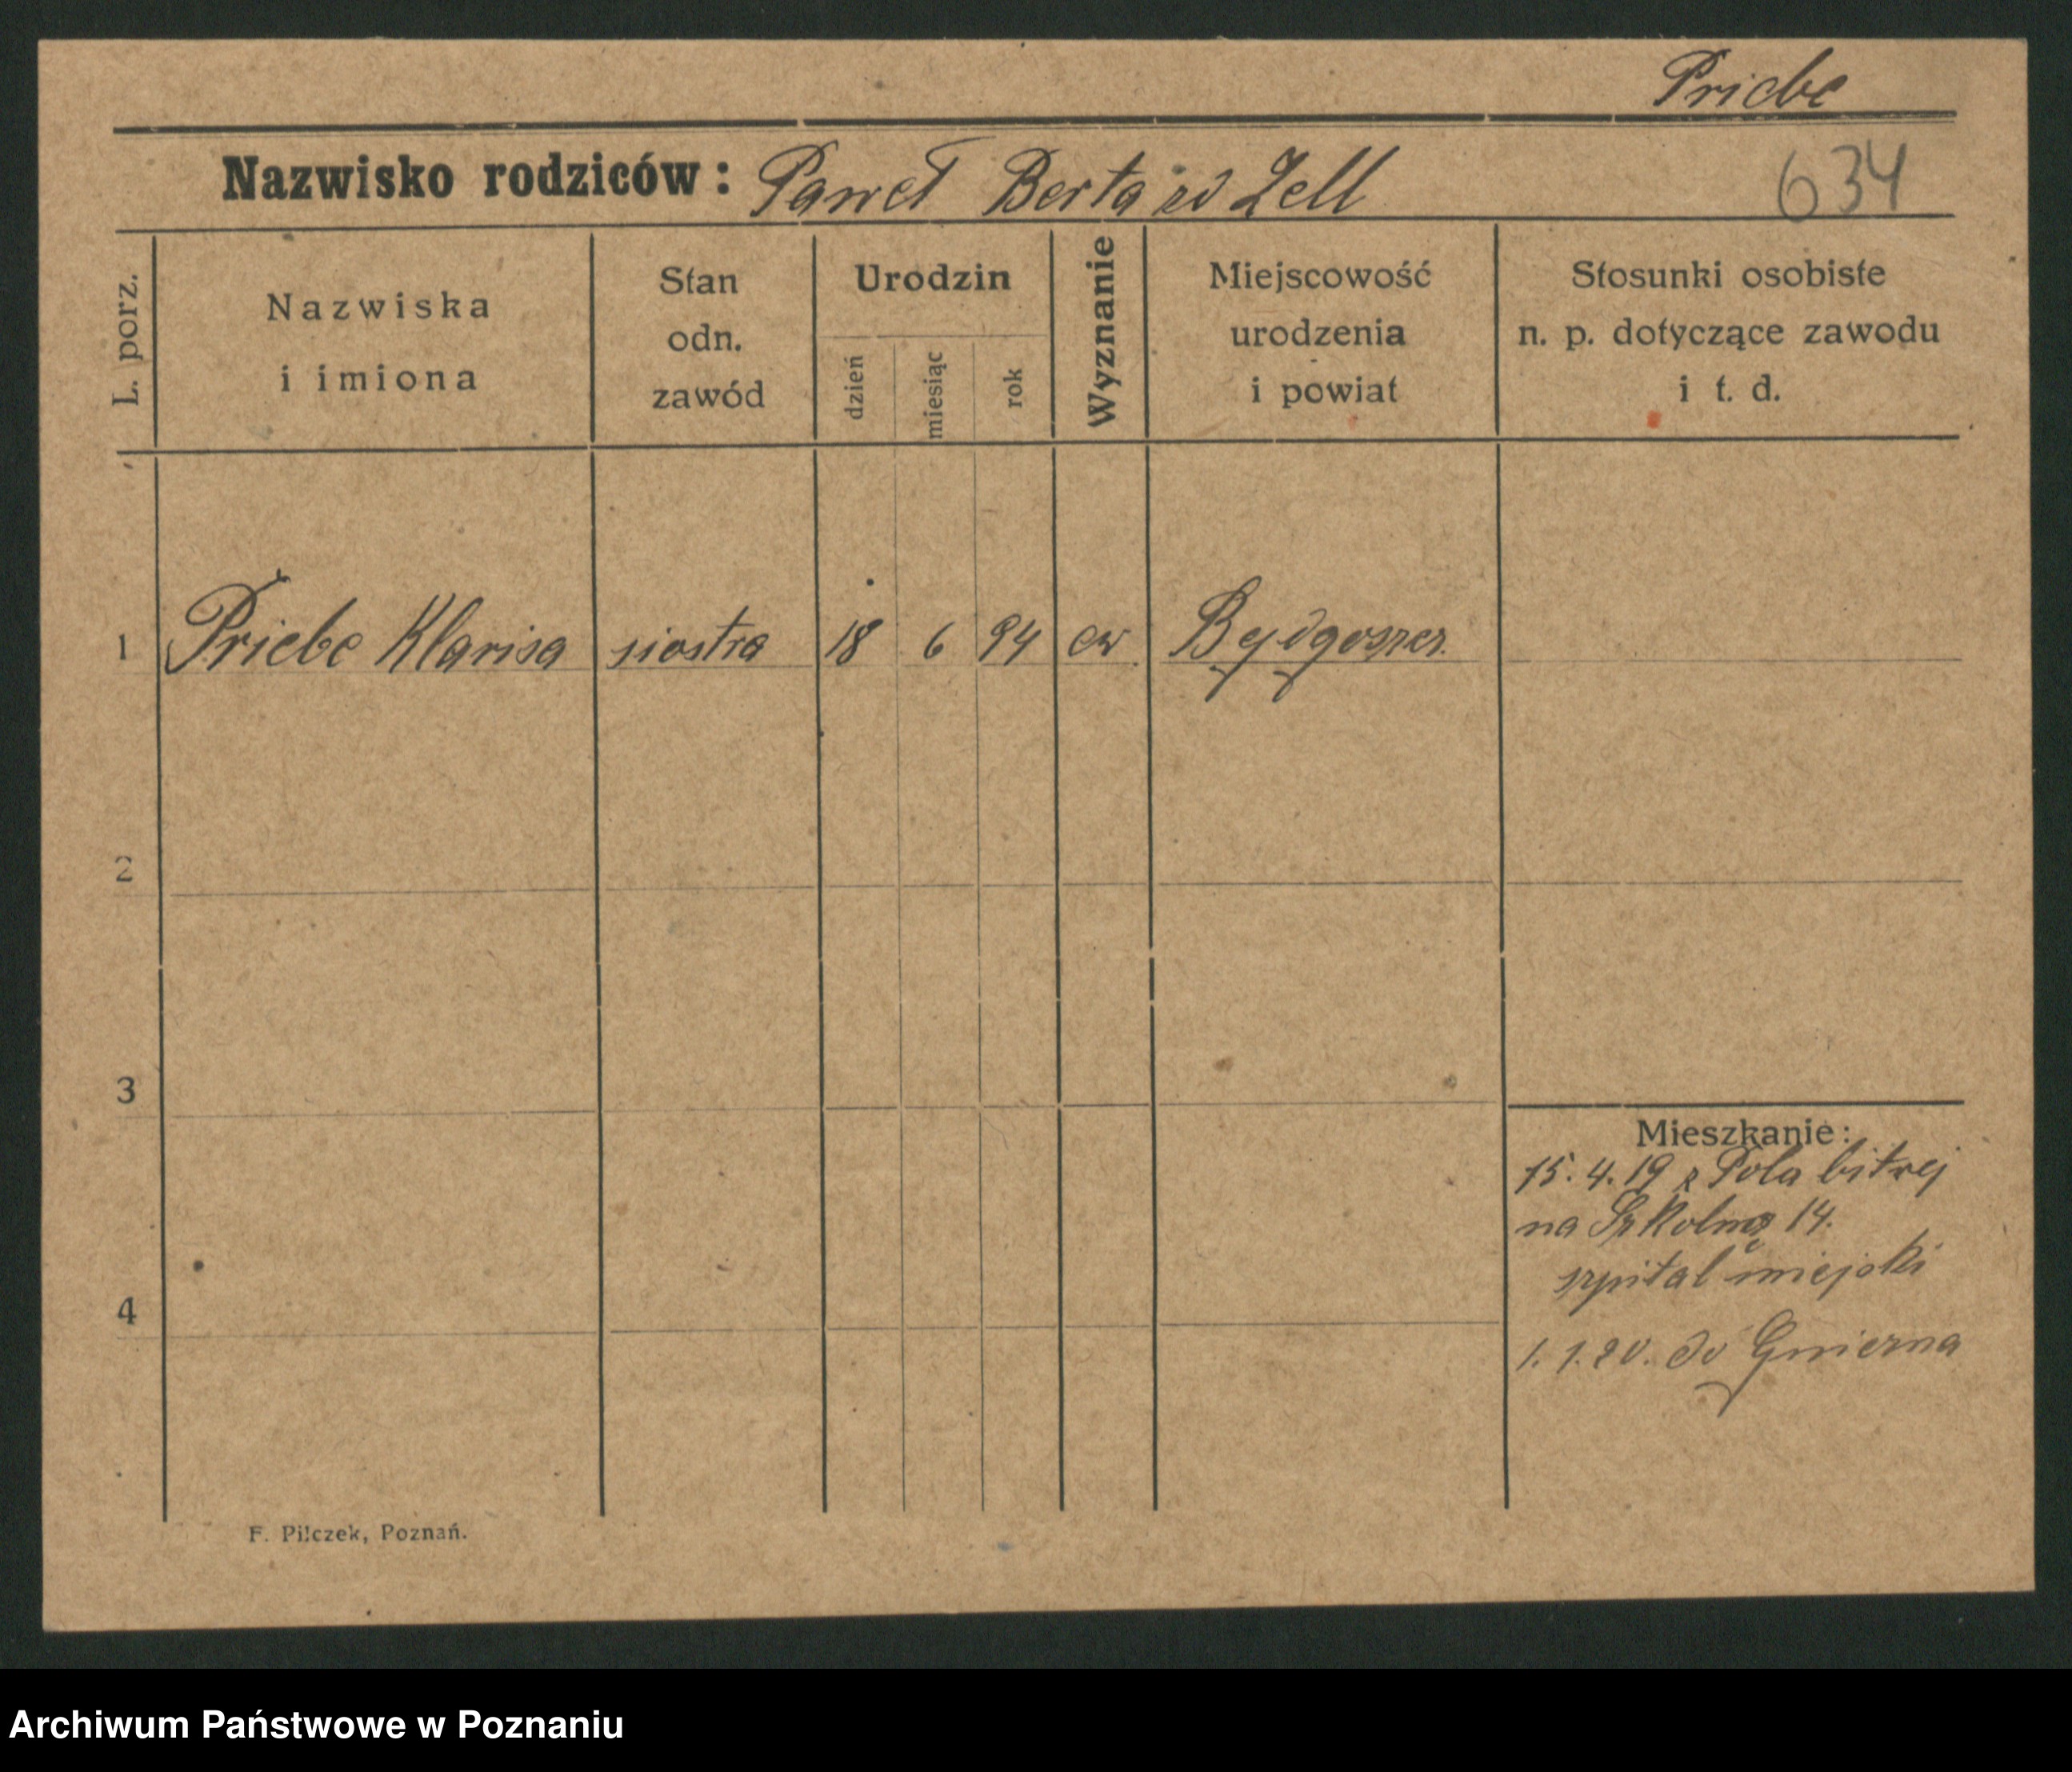 Priebe
Nazwisko rodziców: Paweł Berta zd Zell
634
L. porz.
Nazwiska
i imiona
Stan
odn.
zawód
Urodzin
dzień
miesiąc
rok
Wyznanie
Miejscowość
urodzenia
i powiat
Stosunki osobiste
n. p. dotyczące zawodu
i t. d.
1 Priebe Klarisa siostra 18 6 94 ew Bydgoszcz.
2
3
Mieszkanie:
15. 4. 19 z Pola bitwej
na Szkolną 14.
szpital miejski
4
1. 1. 20. do Gniezna
F. Pilczek, Poznań.
Archiwum Państwowe w Poznaniu